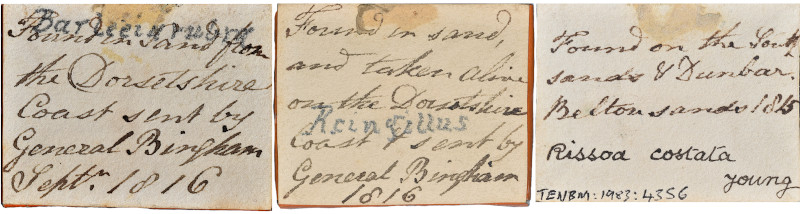 Barleeia rubra
Found in Sand from
the Dorsetshire
Coast sent by
General Bingham
Septr. 1816
Found in sand,
and taken alive
on the Dorsetshire
R. cingillus
Coast & sent by
General Bingham
1816
Found on the South
sands & Dunbar.
Belton sands 1815
Rissoa costata
young
TENBM:1983:4356